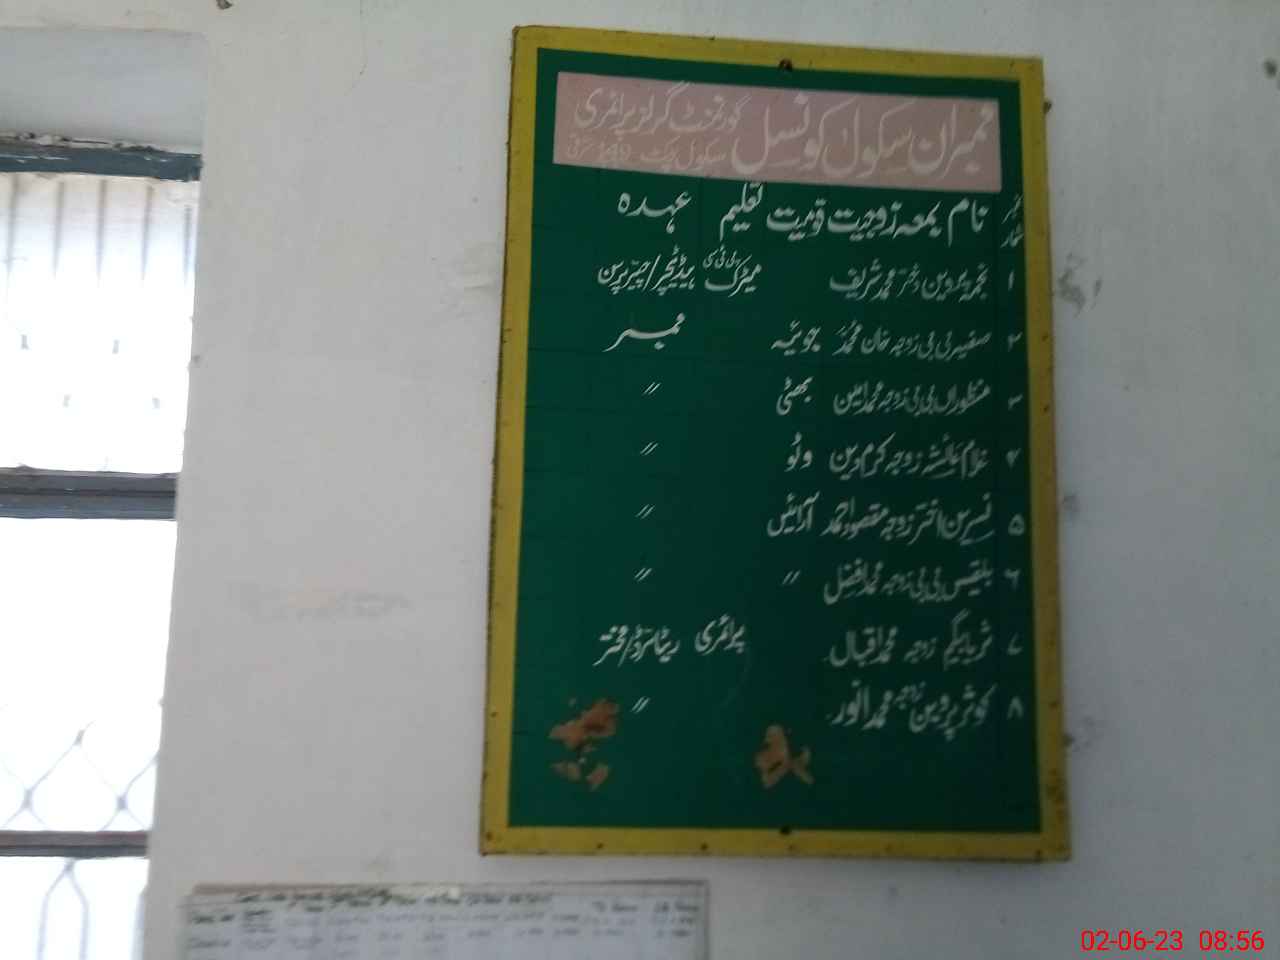 ممبران سکول کونسل گورنمنٹ گرلز پرائمری
سکول چک 149
نمبر شمار نام بمعہ زوجیت قومیت تعلیم عہدہ
۱ نجمہ پروین دختر محمد شریف میٹرک پی ٹی سی ہیڈ ٹیچر/چیئرپرسن
۲ صفیہ بی بی زوجہ خان محمد جوئیہ ممبر
۳ منظوراں بی بی زوجہ محمد امین بھٹی 〃
۴ غلام عائشہ زوجہ کرم دین وٹو 〃
۵ نسرین اختر زوجہ مقصود احمد آرائیں 〃
۶ بلقیس بی بی زوجہ محمد افضل 〃 〃
۷ ثریا بیگم زوجہ محمد اقبال پرائمری ریٹائرڈ/مخیر
۸ کوثر پروین زوجہ محمد انور 〃
02-06-23 08:56